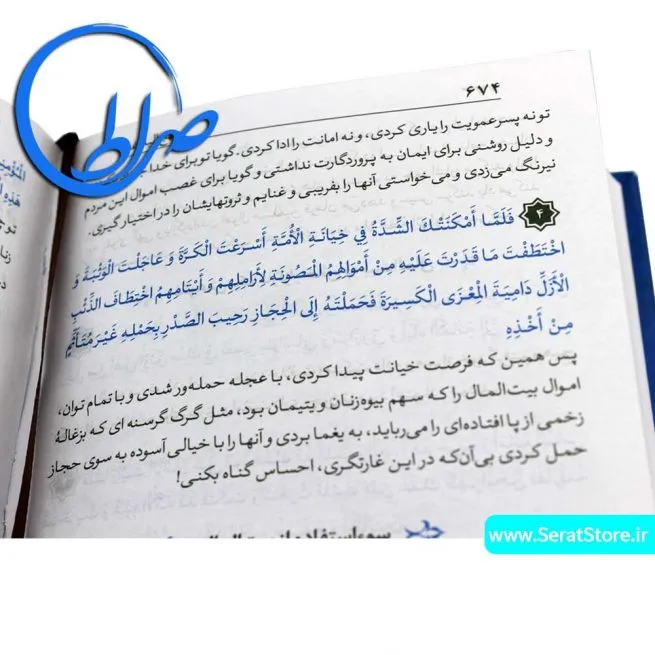 صراط
۶۷۴
تو نه پسرعمویت را یاری کردی، و نه امانت را ادا کردی. گویا تو برای خدا
و دلیل روشنی برای ایمان به پروردگارت نداشتی و گویا برای غصب اموال این مردم
نیرنگ می‌زدی و می‌خواستی آنها را بفریبی و غنایم و ثروتهایشان را در اختیار گیری.
۴ فَلَمَّا أَمْكَنَتْكَ الشِّدَّةُ فِي خِيَانَةِ الْأُمَّةِ أَسْرَعْتَ الْكَرَّةَ وَ عَاجَلْتَ الْوَثْبَةَ وَ
اخْتَطَفْتَ مَا قَدَرْتَ عَلَيْهِ مِنْ أَمْوَالِهِمُ الْمَصُونَةِ لِأَرَامِلِهِمْ وَ أَيْتَامِهِمُ اخْتِطَافَ الذِّئْبِ
الْأَزَلِّ دَامِيَةَ الْمِعْزَى الْكَسِيرَةَ فَحَمَلْتَهُ إِلَى الْحِجَازِ رَحِيبَ الصَّدْرِ بِحَمْلِهِ غَيْرَ مُتَأَثِّمٍ
مِنْ أَخْذِهِ
پس همین که فرصت خیانت پیدا کردی، با عجله حمله‌ور شدی و با تمام توان،
اموال بیت‌المال را که سهم بیوه‌زنان و یتیمان بود، مثل گرگ گرسنه ای که بزغالهٔ
زخمی از پا افتاده‌ای را می‌رباید، به یغما بردی و آنها را با خیالی آسوده به سوی حجاز
حمل کردی بی‌آن‌که در این غارتگری، احساس گناه بکنی!
www.SeratStore.ir